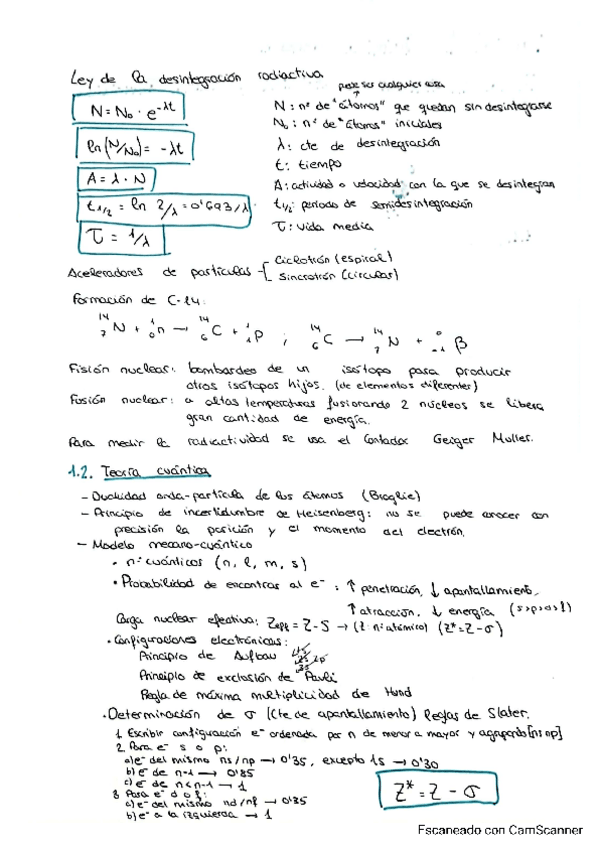 Ley de la desintegración radiactiva
puede ser cualquier cosa
N = N₀ · e^-λt
N: nº de "átomos" que quedan sin desintegrarse
N₀: nº de "átomos" iniciales
ln(N/N₀) = -λt
λ: cte de desintegración
t: tiempo
A = λ · N
A: actividad o velocidad con la que se desintegran
t1/2 = ln 2/λ = 0'693/λ
t1/2: periodo de semidesintegración
τ = 1/λ
τ: vida media
Aceleradores de partículas { Ciclotrón (espiral)
Sincrotrón (circular)
Formación de C-14:
¹⁴₇N + ¹₀n → ¹⁴₆C + ¹₁p ; ¹⁴₆C → ¹⁴₇N + ⁰₋₁β
Fisión nuclear: bombardeo de un isótopo para producir
otros isótopos hijos. (de elementos diferentes)
Fusión nuclear: a altas temperaturas fusionando 2 núcleos se libera
gran cantidad de energía.
Para medir la radiactividad se usa el Contador Geiger Muller.
1.2. Teoría cuántica
- Dualidad onda-partícula de los átomos (Broglie)
- Principio de incertidumbre de Heisenberg: no se puede conocer con
precisión la posición y el momento del electrón.
- Modelo mecano-cuántico
· nº cuánticos (n, l, m, s)
· Probabilidad de encontrar al e⁻: ↑ penetración, ↓ apantallamiento,
↑ atracción, ↓ energía (s>p>d>f)
Carga nuclear efectiva: Zefc = Z - S → (Z: nº atómico) (Z* = Z - σ)
· Configuraciones electrónicas:
Principio de Aufbau
Principio de exclusión de Pauli
Regla de máxima multiplicidad de Hund
· Determinación de σ (Cte de apantallamiento) Reglas de Slater:
1. Escribir configuración e⁻ ordenada por n de menor a mayor y agrupando [ns np]
2. Para e⁻ s o p:
a) e⁻ del mismo ns/np → 0'35, excepto 1s → 0'30
b) e⁻ de n-1 → 0'85
c) e⁻ de n<n-1 → 1
3. Para e⁻ d o f:
a) e⁻ del mismo nd/nf → 0'35
b) e⁻ a la izquierda → 1
Z* = Z - σ
Escaneado con CamScanner